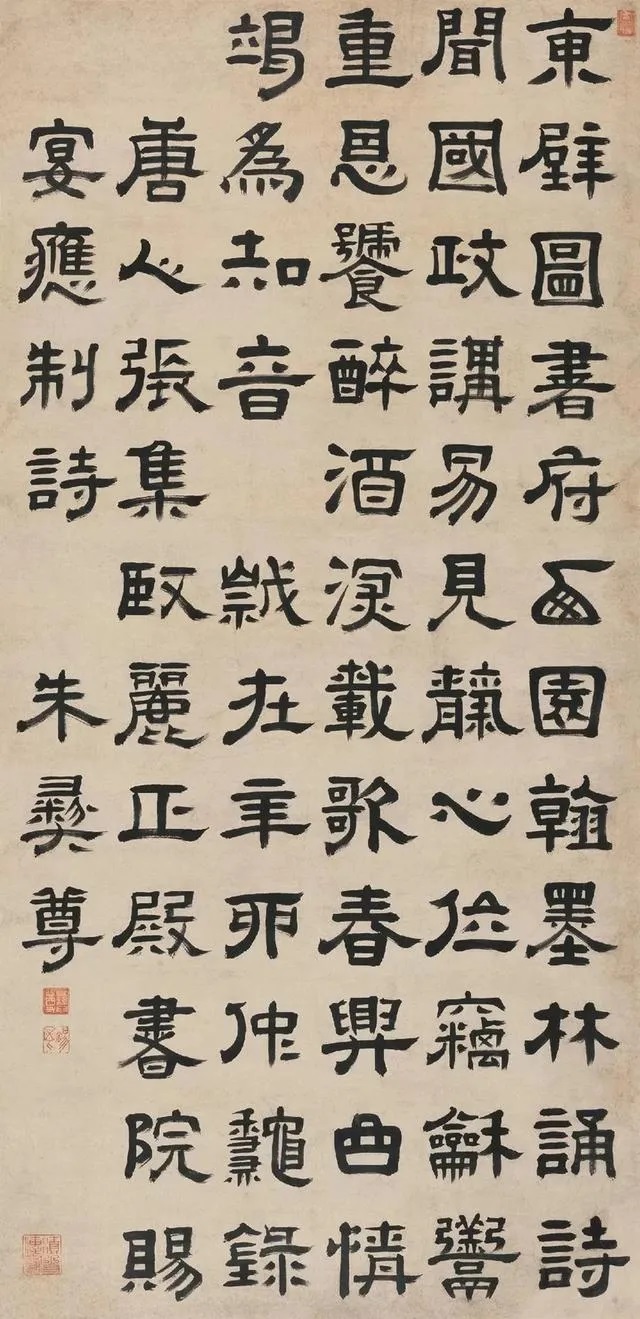 東壁圖書府西園翰墨林誦詩
聞國政講易見靝心位竊龢羹
重恩饕醉酒深載歌春興曲情
竭為知音 歲在辛卯仲龝錄
唐人張集臤麗正殿書院賜
宴應制詩 朱彝尊